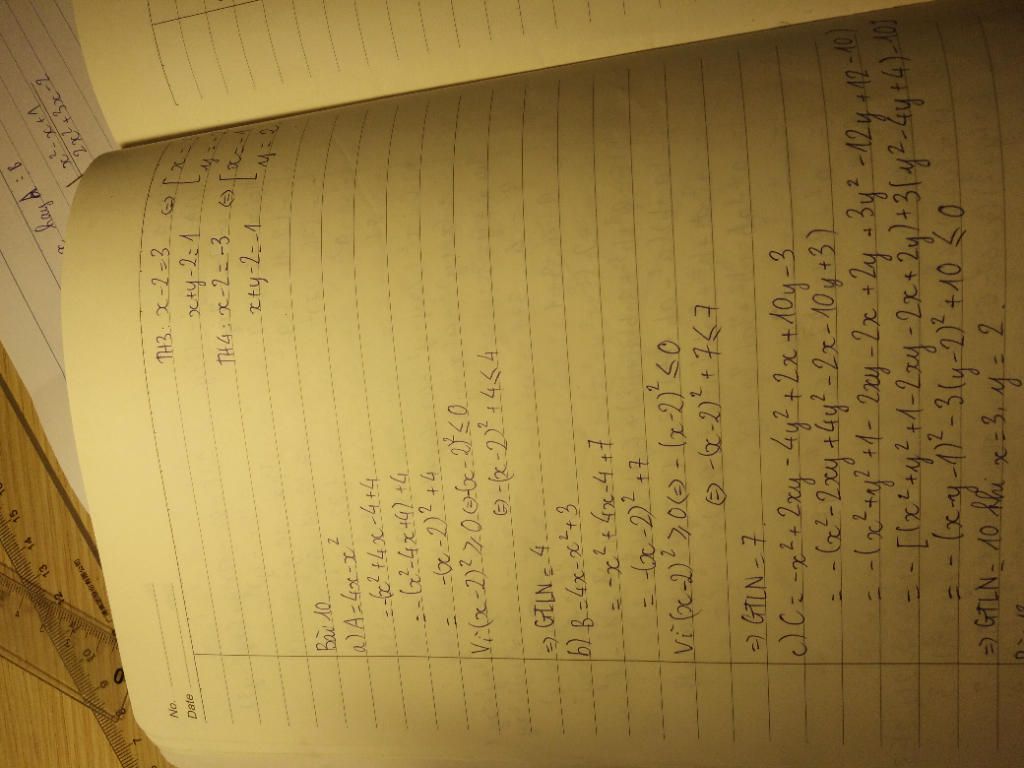 x²-x+1
hay A : B
2x²+3x-2
No.
Date
TH3: x-2=3 (=) [x
x+y-2=1 [y=
TH4: x-2=-3 (=) [x=-1
x+y-2=-1 [y=2
Bài 10
a) A=4x-x²
= -x²+4x-4+4
= -(x²-4x+4)+4
= -(x-2)²+4
Vì (x-2)² ≥ 0 (=) -(x-2)² ≤ 0
(=) -(x-2)²+4 ≤ 4
=> GTLN = 4
b) B=4x-x²+3
= -x²+4x-4+7
= -(x-2)²+7
Vì (x-2)² ≥ 0 (=) -(x-2)² ≤ 0
(=) -(x-2)²+7 ≤ 7
=> GTLN = 7
c) C=-x²+2xy-4y²+2x+10y-3
= -(x²-2xy+4y²-2x-10y+3)
= -(x²+y²+1-2xy-2x+2y+3y²-12y+12-10)
= -[(x²+y²+1-2xy-2x+2y)+3(y²-4y+4)-10]
= -(x-y-1)²-3(y-2)²+10 ≤ 0
=> GTLN = 10 khi x=3, y=2.